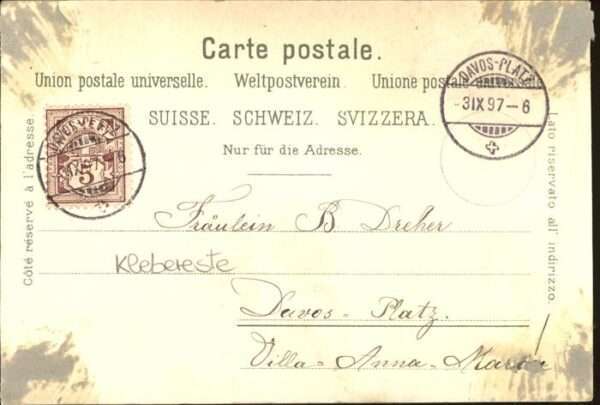 Carte postale.
Union postale universelle. Weltpostverein. Unione postale
SUISSE. SCHWEIZ. SVIZZERA.
Nur für die Adresse.
Côté réservé à l'adresse.
Lato riservato all' indirizzo.
5
DAVOS-PLATZ
-3IX97-6
Fräulein B Dreher
Klebereste
Davos-Platz.
Villa-Anna-Maria